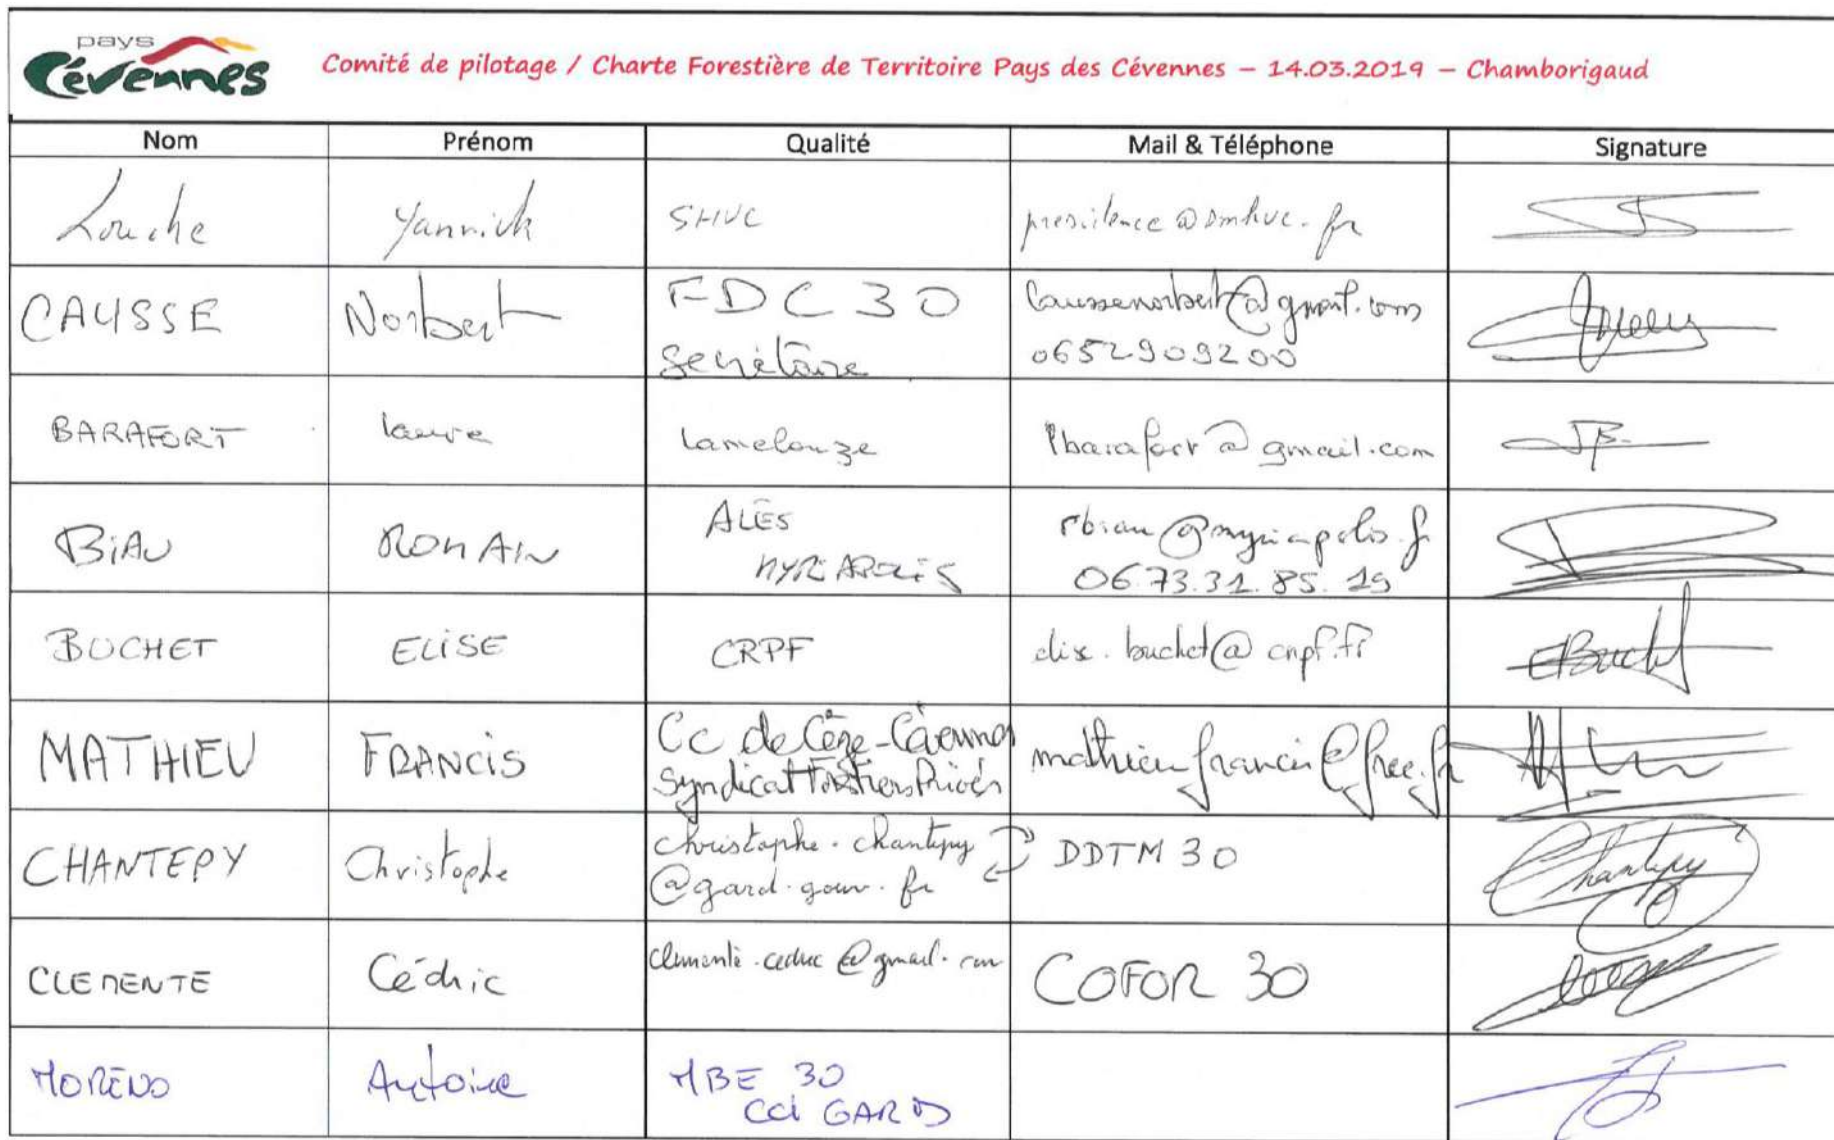 pays
Cévennes
Comité de pilotage / Charte Forestière de Territoire Pays des Cévennes – 14.03.2019 – Chamborigaud
Nom Prénom Qualité Mail & Téléphone Signature
Louche Yannick SHVC presidence@smhvc.fr
CAUSSE Norbert FDC 30 caussenorbert@gmail.com
secrétaire 0652909200
BARAFORT laure Lamelouze lbarafort@gmail.com
BIAU ROMAIN ALÈS rbiau@myriapolis.fr
MYRIAPOLIS 06.73.31.85.19
BUCHET ELISE CRPF elise.buchet@cnpf.fr EBuchet
MATHIEU FRANCIS Cc de Cèze-Cévennes mathieu.francis@free.fr
Syndicat Forestiers Privés
CHANTEPY Christophe christophe.chantepy DDTM 30 Chantepy
@gard.gouv.fr
CLEMENTE Cédric clemente.cedric@gmail.com COFOR 30
MORENO Antoine MBE 30
CCI GARD